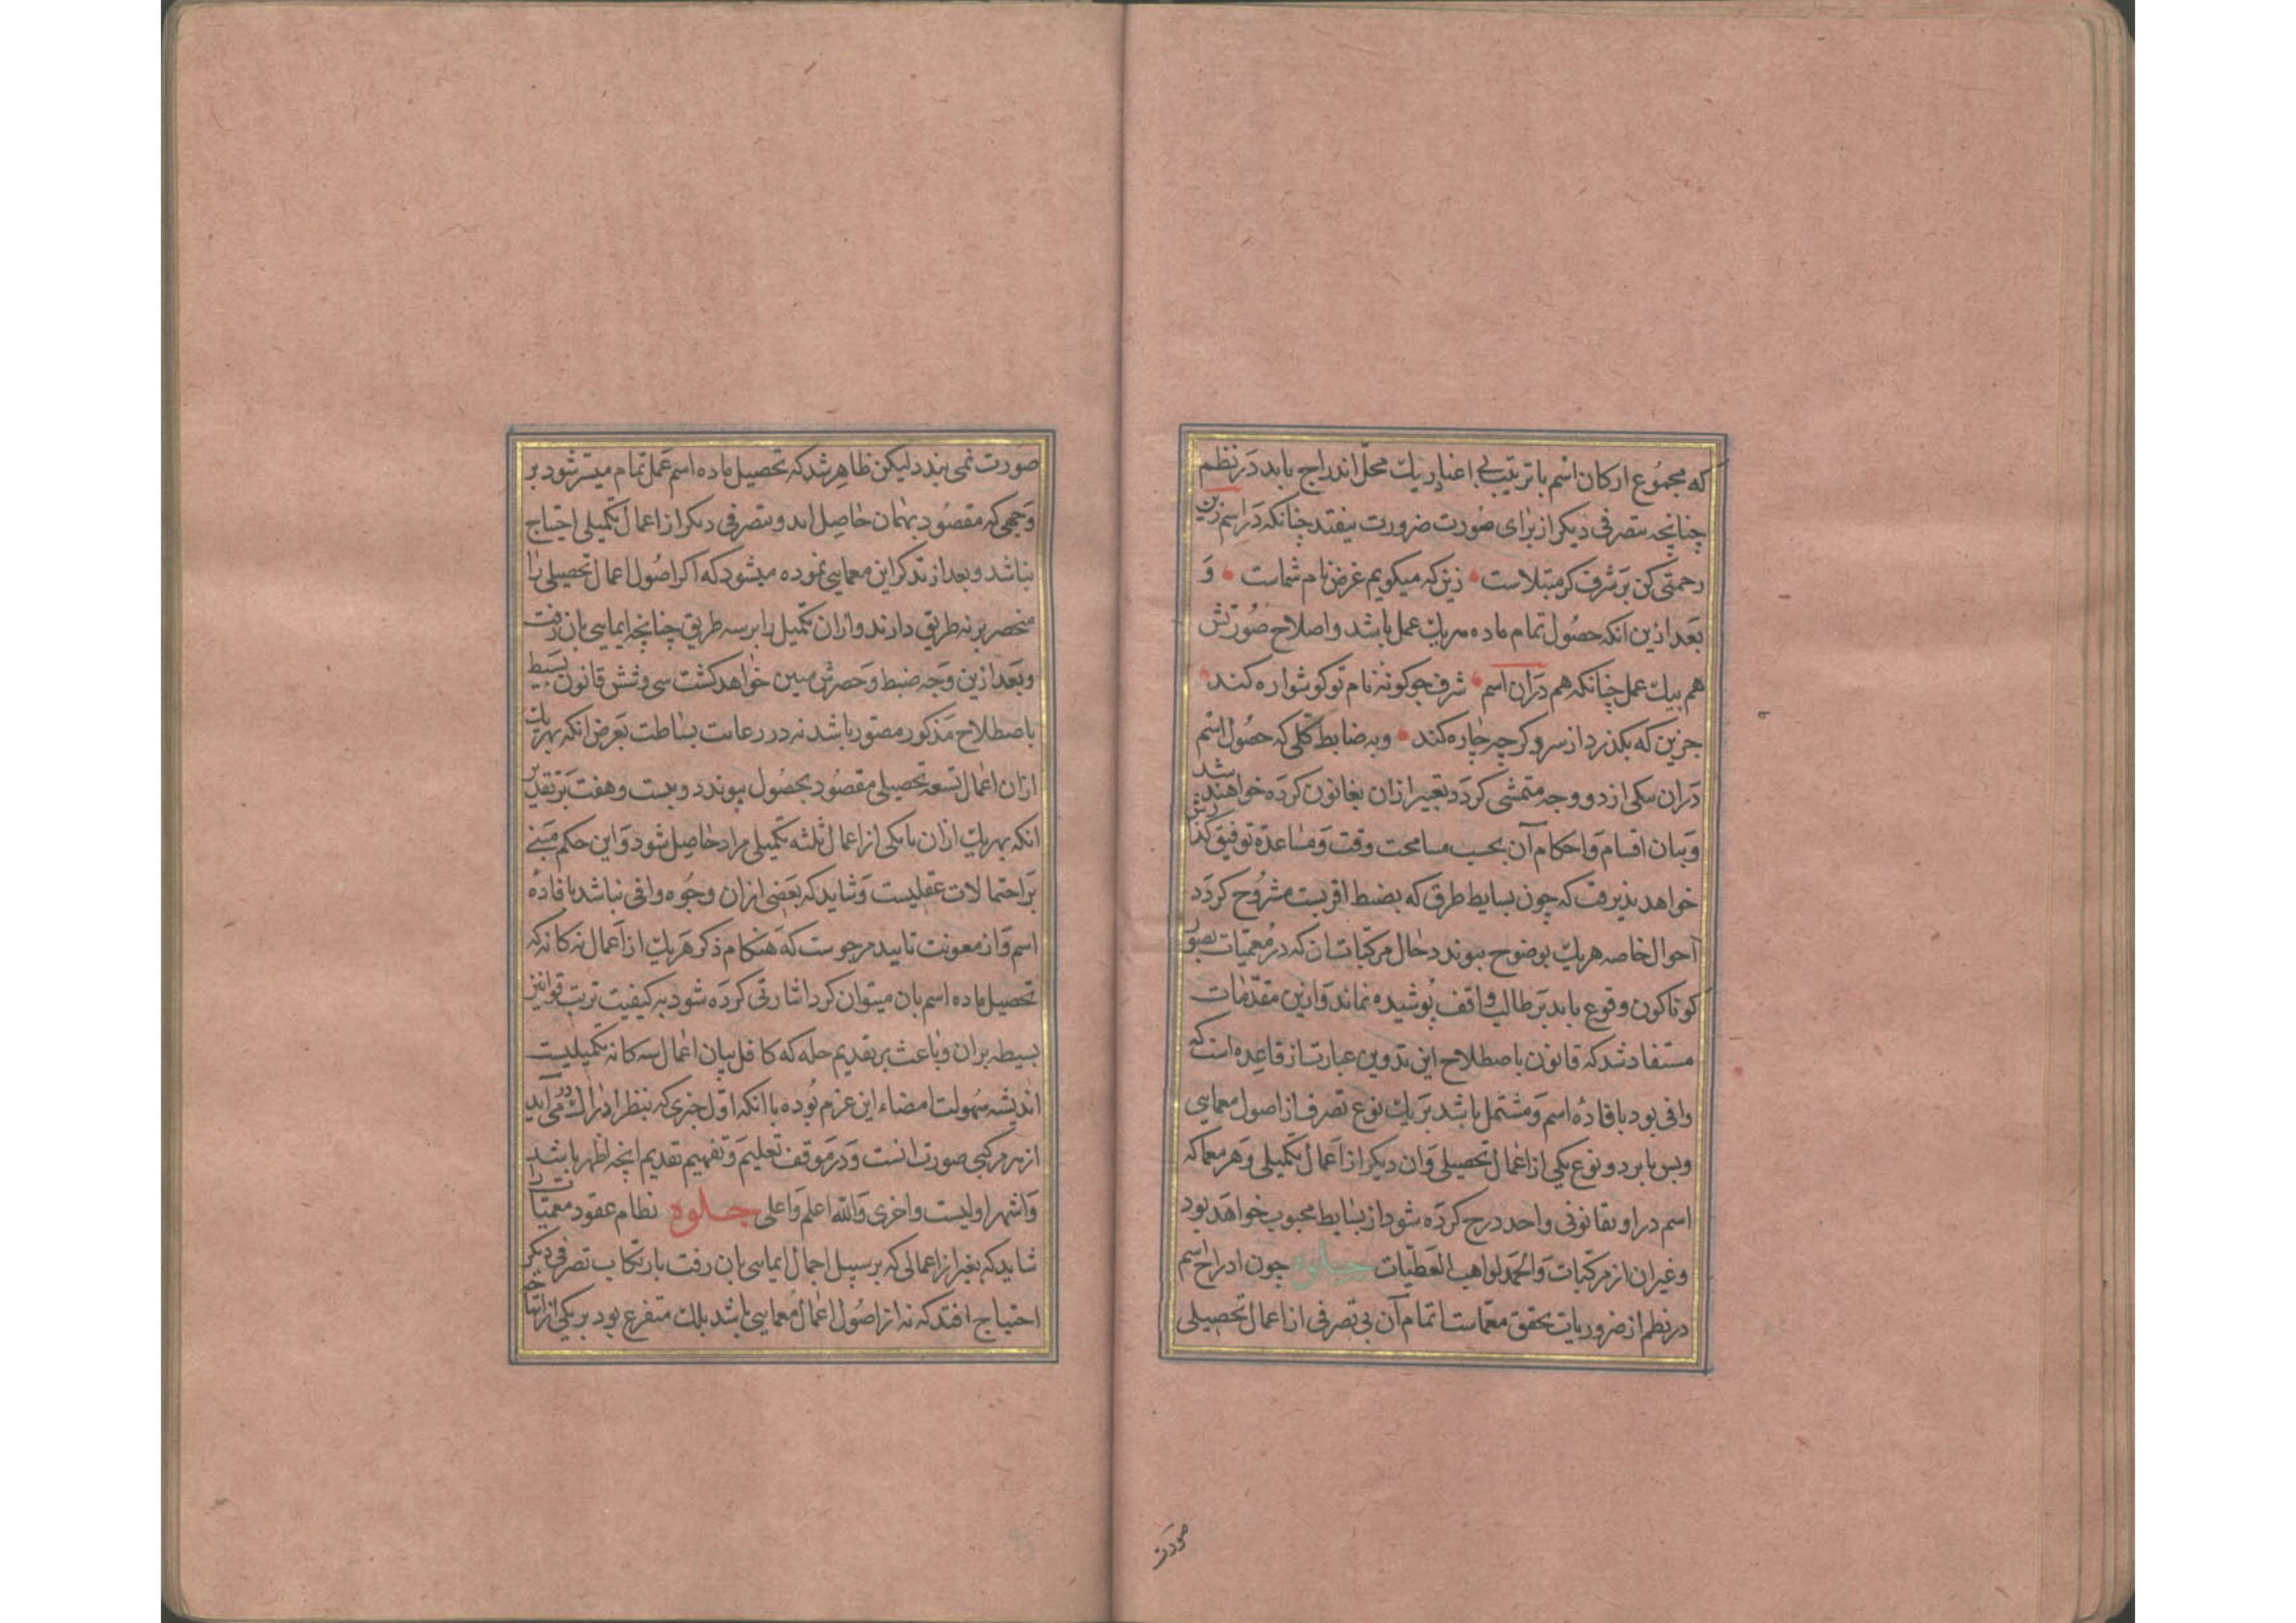 که مجموع ارکان اسم با ترتیب باعتبار یک محل اندراج یابد در نظم
چنانچه بتصرفی دیکر از برای صورت ضرورت نیفتد چنانکه در اسم زین
رحمتی کن بر شرف کر مبتلاست زین که میکویم غرض نام شماست و
بعد ازین انکه حصول تمام ماده بیک عمل باشد و اصلاح صورتش
هم بیک عمل چنانکه هم دران اسم شرف چو کونه نام تو کوشواره کند
جزین که بکذرد از سر و کر چه چاره کند و به ضابط کلی که حصول اسم
دران بیکی از دو وجه متمشی کردد تعبیر ازان بقانون کرده خواهد شد
و بیان اقسام و احکام آن بحسب مسامحت وقت و مساعده توفیق کذارش
خواهد پذیرفت که چون بسایط طرق که بضبط اقربست مشروح کردد
احوال خاصه هریک بوضوح پیوندد حال مرکبات ان که در معمیات بصور
کوناکون وقوع یابد بر طالب واقف پوشیده نماند و ازین مقدمات
مستفاد شد که قانون باصطلاح این تدوین عبارت از قاعده است که
وافی بود بافاده اسم و مشتمل باشد بر یک نوع تصرف از اصول معمایی
و بس یا بر دو نوع یکی از اعمال تحصیلی وان دیکر از اعمال تکمیلی و هر معما که
اسم در او بقانونی واحد درج کرده شود از بسایط محبوب خواهد بود
و غیر ان از مرکبات والحمد لواهب العطیات جلوه چون ادراج اسم
در نظم از ضروریات تحقق معماست اتمام آن بی تصرفی از اعمال تحصیلی
صورت
صورت نمی بندد لیکن ظاهر شد که تحصیل ماده اسم عمل تمام میسر شود بر
وجهی که مقصود بهمان حاصل اید و بتصرفی دیکر از اعمال تکمیلی احتیاج
نباشد و بعد از تذکر این معما یی نموده میشود که اکر اصول اعمال تحصیلی را
منحصر بر نه طریق دارند وازان تکمیل را بر سه طریق چنانچه ایمایی بان رفت
و بعد ازین وجه ضبط و حصرش مبین خواهد کشت سی و شش قانون بسیط
باصطلاح مذکور مصتور باشد نه در رعایت بساطت بعرض انکه بهریک
ازان اعمال تسعه تحصیلی مقصود بحصول پیوندد و بیست و هفت بر تقدیر
انکه بهریک ازان با یکی از اعمال ثلثه تکمیلی مراد حاصل شود و این حکم مبنی
بر احتمالات عقلیست و شاید که بعضی ازان وجوه وافی نباشد بافاده
اسم و از معونت تایید مرجوست که هنکام ذکر هریک از اعمال نه کانه که
تحصیل ماده اسم بان میتوان کرد اشارتی کرده شود به کیفیت ترتب قوانین
بسیطه بران و باعث بر تقدیم حله که کافل بیان اعمال سه کانه تکمیلیست
اندیشه سهولت امضاء این عزم بوده با انکه اول چیزی که بنظر ادراک در می آید
از هر مرکبی صورت انست و در موقف تعلیم و تفهیم تقدیم انچه اظهر باشد
و اشهر اولیست واحری والله اعلم واعلی جلوه نظام عقود معمیات را
شاید که بغیر از اعمالی که بر سبیل اجمال ایمایی بان رفت بارتکاب تصرفی دیکر
احتیاج افتد که نه از اصول اعمال معمایی باشد بلک متفرع بود بر یکی از انها